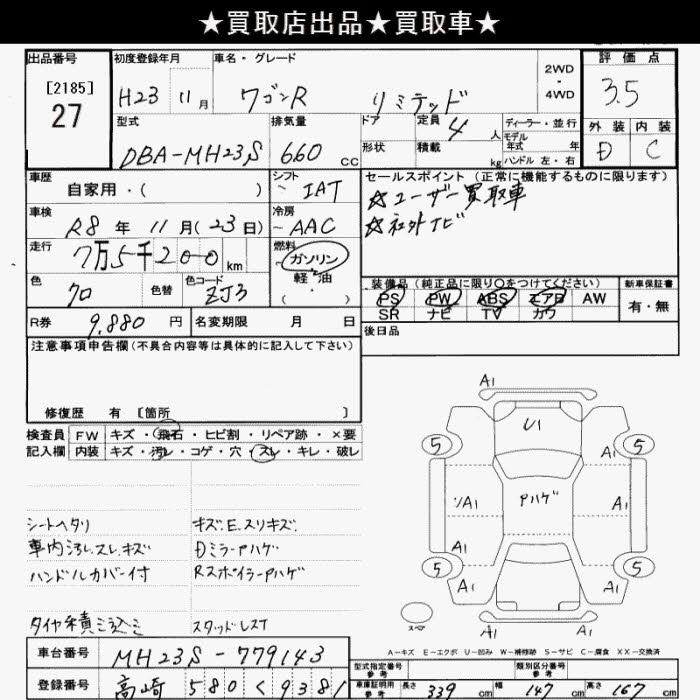 ★買取店出品★買取車★
出品番号 初度登録年月 車名・グレード 2WD・4WD 評価点
[2185] 27 H23 11月 ワゴンR リミテッド 3.5
型式 排気量 ドア 定員 4人 ディーラー・並行 外装 内装
DBA-MH23S 660cc 形状 積載 kg モデル年式 年 D C
ハンドル 左・右
車歴 自家用・( ) シフト IAT セールスポイント (正常に機能するものに限ります)
☆ユーザー買取車
車検 R8年 11月(23日) 冷房 AAC ☆社外ナビ
走行 7万5千200km 燃料 ガソリン 軽・油 ( ・ )
色 クロ 色替 色コード ZJ3
装備品(純正品に限り○をつけてください) 新車保証書
PS PW ABS エアB AW 有・無
SR ナビ TV カワ
R券 9,880円 名変期限 月 日 後日品
注意事項申告欄(不具合内容等は具体的に記入して下さい)
修復歴 有 [箇所 ]
検査員 FW キズ・飛石・ヒビ割・リペア跡・×要
記入欄 内装 キズ・汚レ・コゲ・穴・スレ・キレ・破レ
シートヘタリ キズ.E.スリキズ.
車内汚レ.スレ.キズ Dミラー Pハゲ
ハンドルカバー付 RスポイラーPハゲ
タイヤ積ミ込ミ スタッドレスT
A1
U1
5 5
A1
ソA1 Pハゲ A1
A1
5 5
A1 A1
スペア
A1 A1
A-キズ E-エクボ U-凹み W-補修跡 S-サビ C-腐食 XX-交換済
車台番号 MH23S-779143 型式指定番号 参考 類別区分番号 参考
登録番号 高崎 580 く 9381 車庫証明用 参考 長さ 339cm 幅 147cm 高さ 167cm